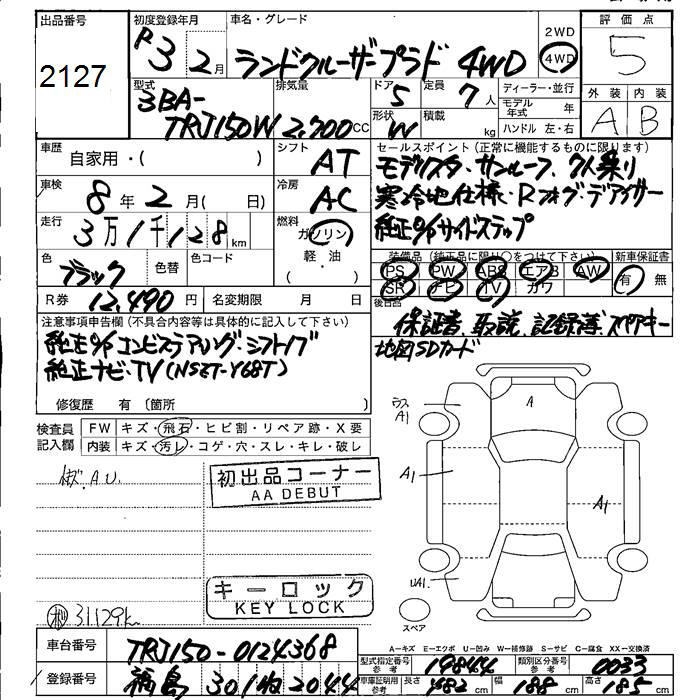 出品番号
2127
初度登録年月
R3 2月
車名・グレード
ランドクルーザープラド 4WD
2WD
4WD
評価点
5
外装 内装
A B
型式
3BA-
TRJ150W
排気量
2,700cc
ドア
5
形状
W
定員
7人
積載
kg
ディーラー・並行
モデル年式 年
ハンドル 左・右
車歴
自家用・( )
シフト
AT
車検
8年2月( 日)
冷房
AC
走行
3万1千128km
燃料
ガソリン
軽・油
( ・ )
色
ブラック
色替
色コード
R券 12,490円
名変期限 月 日
セールスポイント(正常に機能するものに限ります)
モデリスタ・サンルーフ、7人乗り
寒冷地仕様・Rフォグ・デアイサー
純正o/pサイドステップ
装備品(純正品に限り○をつけて下さい)
PS PW ABS エアB AW
SR ナビ TV カワ
新車保証書
有 無
後日品
保証書、取説、記録簿、スペアキー
地図SDカード
注意事項申告欄(不具合内容等は具体的に記入して下さい)
純正o/pコンビステアリング・シフトノブ
純正ナビ・TV(NSZT-Y68T)
修復歴 有(箇所 )
検査員
記入欄
FW キズ・飛石・ヒビ割・リペア跡・X要
内装 キズ・汚レ・コゲ・穴・スレ・キレ・破レ
A.U.
初出品コーナー
AA DEBUT
キーロック
KEY LOCK
31129k
A
ウス
A1
A1
A1
UA1
スペア
A-キズ E-エクボ U-凹み W-補修跡 S-サビ C-腐食 XX-交換済
車台番号
TRJ150-0124368
登録番号
福島 301 ね 2044
型式指定番号
参考
19844
類別区分番号
参考
0033
車庫証明用
参考
長さ 482cm
幅 188cm
高さ 185cm